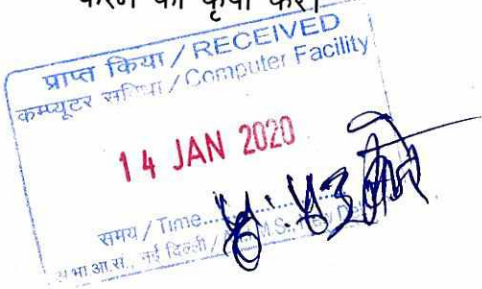 करने की कृपा करें।
प्राप्त किया / RECEIVED
कम्प्यूटर सुविधा / Computer Facility
14 JAN 2020
समय / Time.....
भा आ.स., नई दिल्ली /